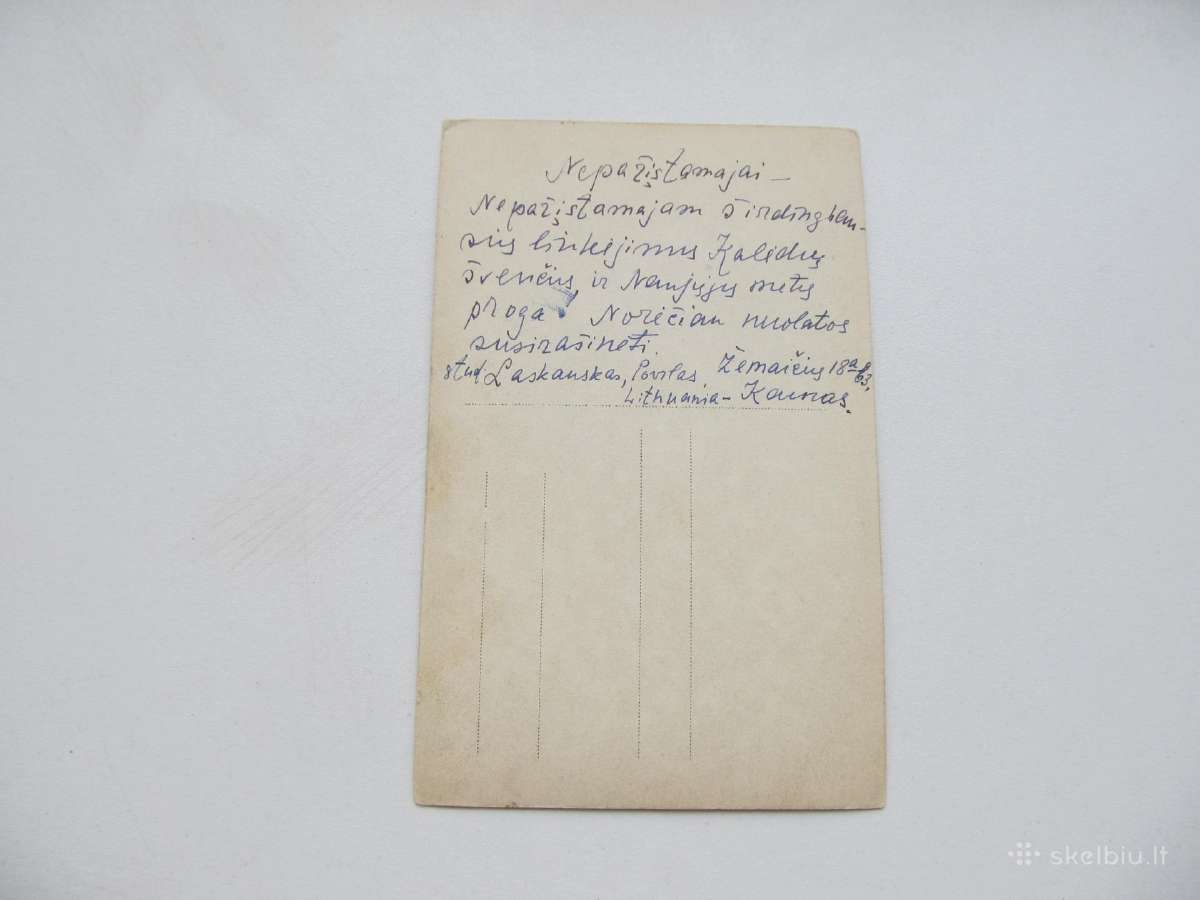 Nepažįstamajai —
Nepažįstamajam širdingiau-
sius linkėjimus Kalėdų
švenčių, ir Naujųjų metų
proga. Norėčiau nuolatos
susirašinėti.
stud. Laskauskas, Povilas, Žemaičių 18a
Lithuania - Kaunas.
skelbiu.lt